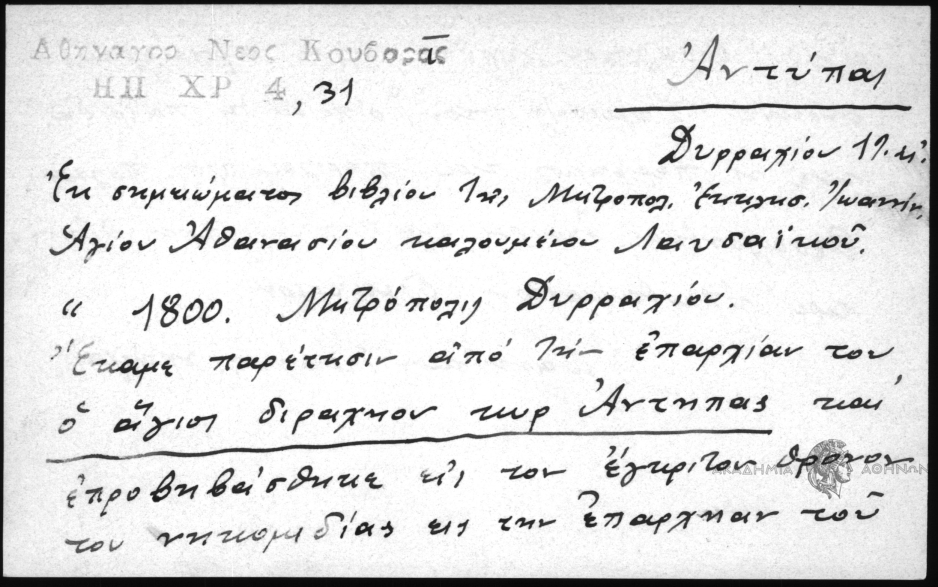 Αθηναγορ Νεος Κουβαρᾶς
ΗΠ ΧΡ 4, 31
Ἀντύπας
Δυρραχίου
Ἐκ σημειώματος βιβλίου τῆς Μητροπολ. Ἐκκλησ. Ἰωαννίν.
Ἁγίου Ἀθανασίου καλουμένου Λαυσαϊκοῦ.
“ 1800. Μητρόπολις Δυρραχίου.
Ἔκαμε παρέτησιν ἀπό τὴν ἐπαρχίαν του
ὁ ἅγιος διραχηου κυρ Ἀντηπας καί
ἐπροβηβάσθηκε εἰς τον ἔγκριτον θρονον
του νηκομιδίας εις την ἐπαρχηαν τοῦ
ΑΚΑΔΗΜΙΑ ΑΘΗΝΩΝ